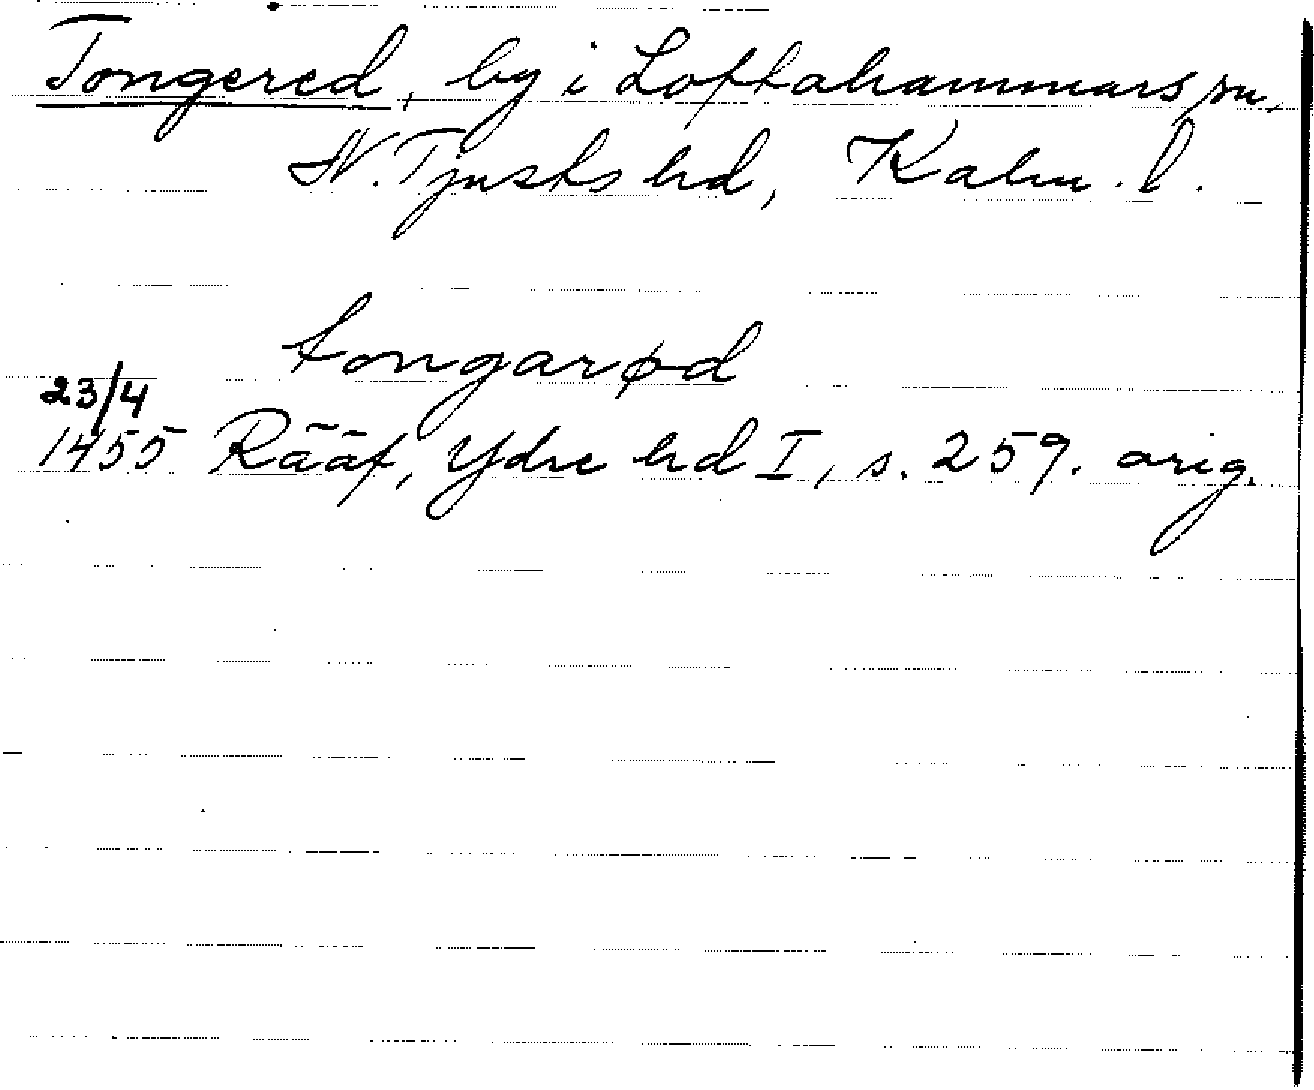 Tongered, by i Loftahammars sn,
N. Tjusts hd, Kalm. l.
tongarød
23/4
1455 Rääf, Ydre hd I, s. 259. orig.